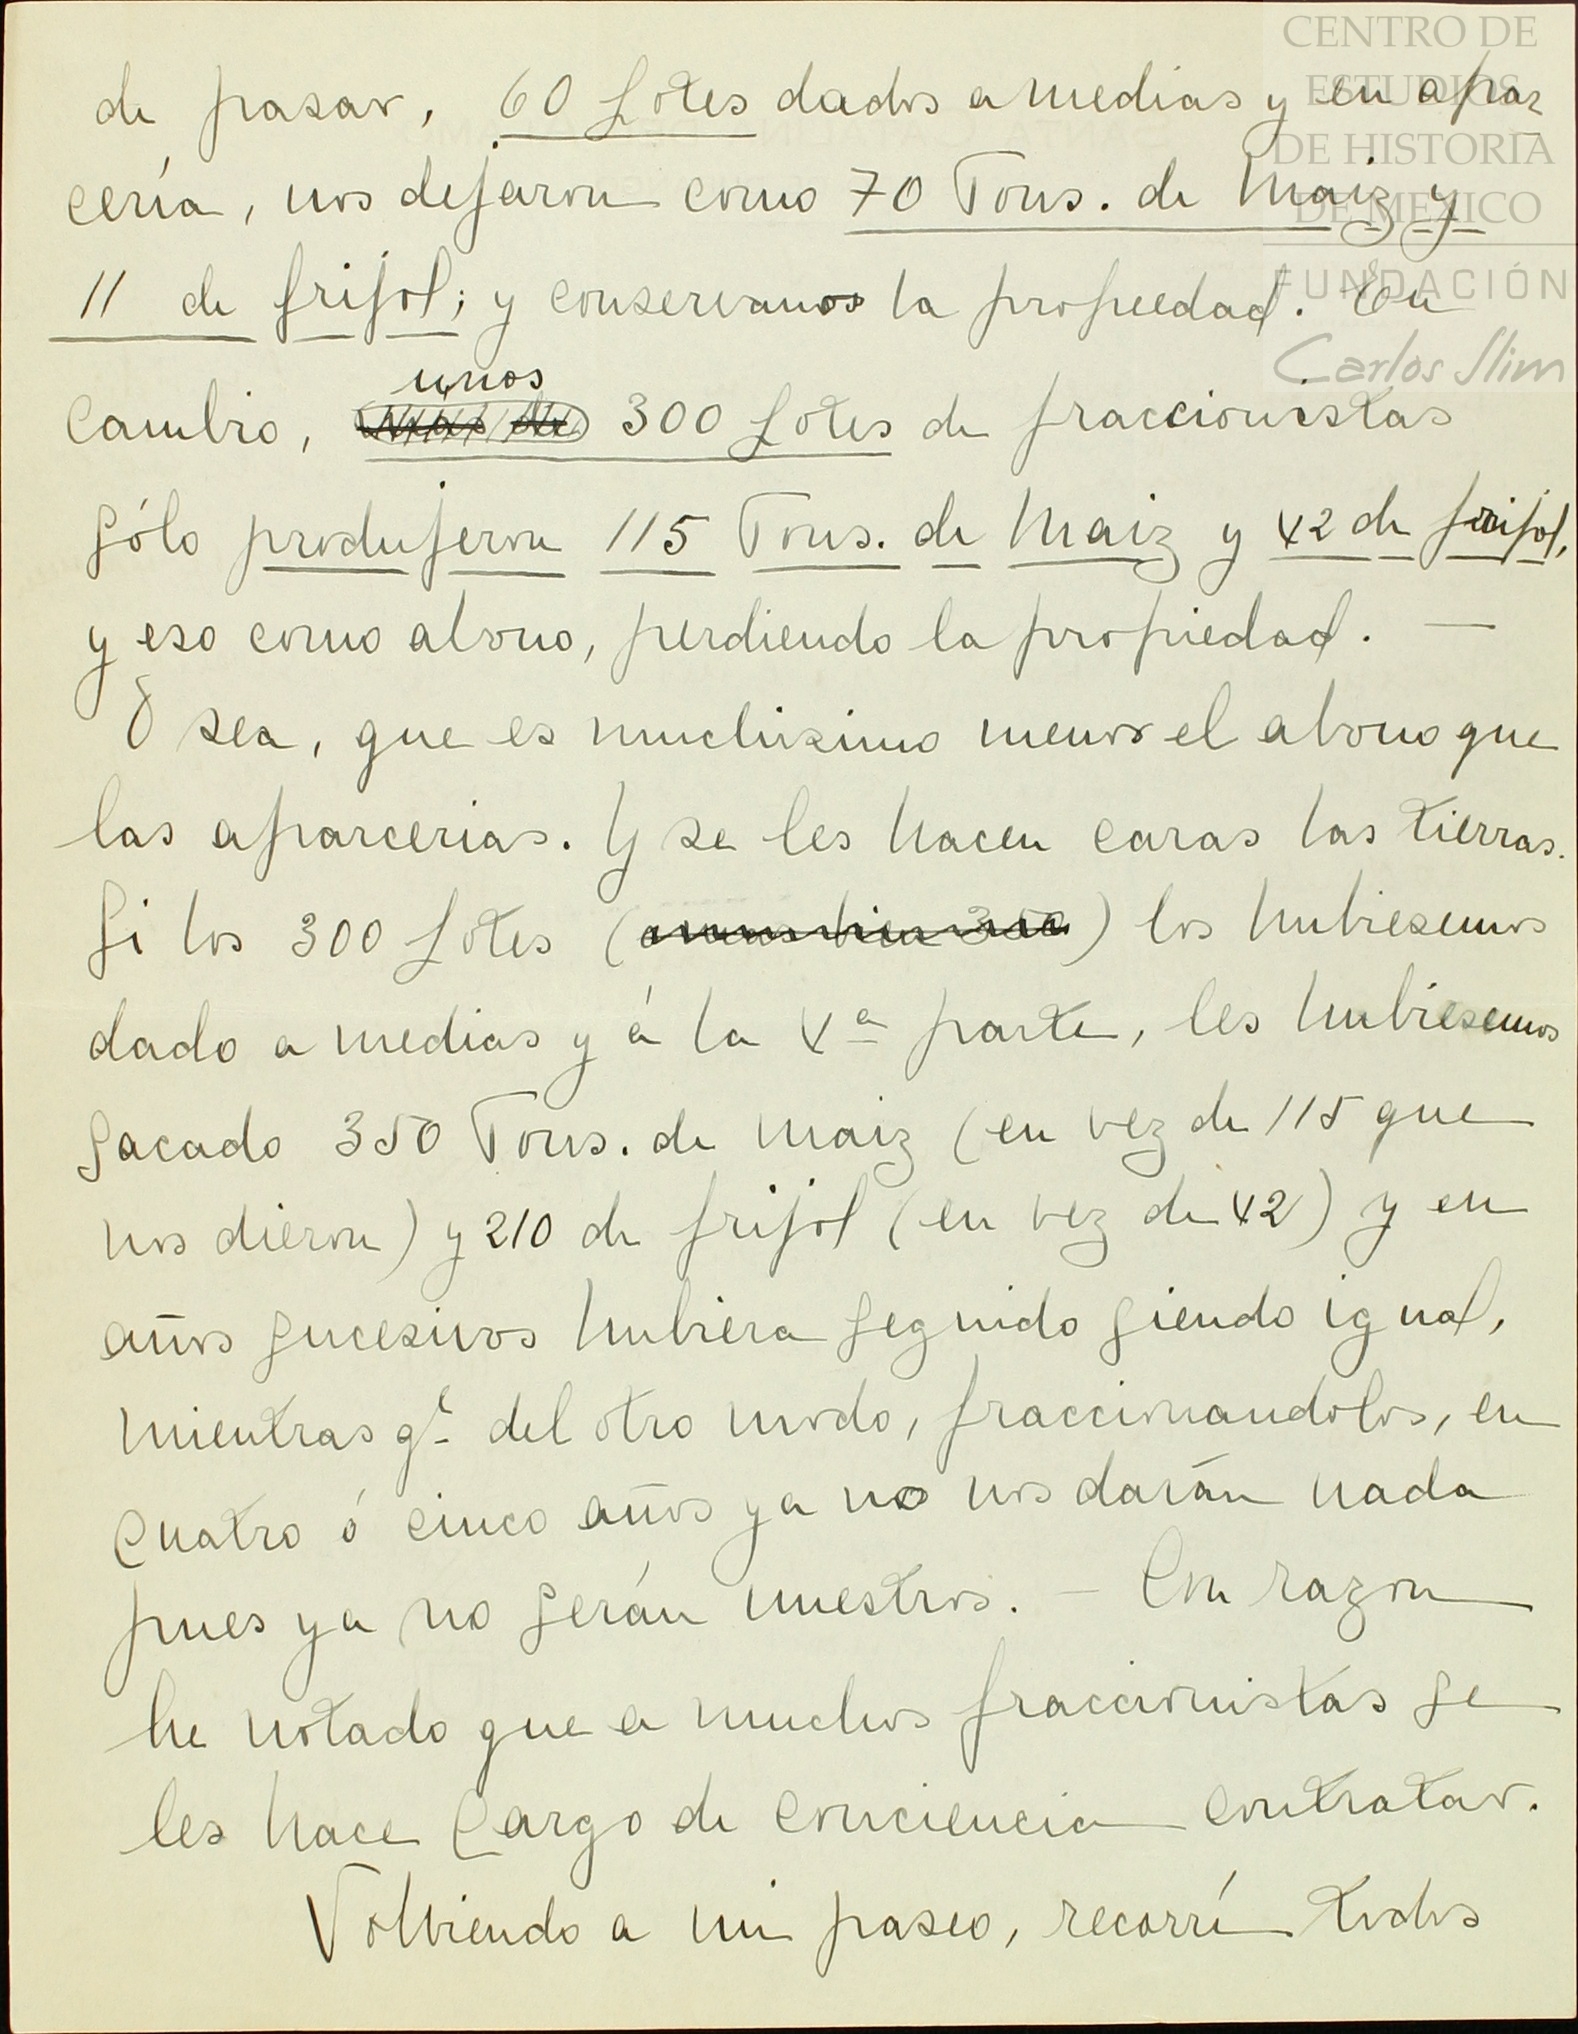 CENTRO DE
ESTUDIOS
DE HISTORIA
DE MEXICO
FUNDACIÓN
Carlos Slim
de pasar, 60 Lotes dados a medias y en apar-
cería, nos dejaron como 70 Tons. de Maiz y
11 de frijol; y conservamos la propiedad. En
unos
Cambio, más de 300 Lotes de fraccionistas
sólo produjeron 115 Tons. de Maiz y 42 de frijol,
y eso como abono, perdiendo la propiedad. —
O sea, que es muchisimo menor el abono que
las aparcerias. Y se les hacen caras las tierras.
Si los 300 Lotes ( ) los hubiesemos
dado a medias y á la 4ª parte, les hubiesemos
sacado 350 Tons. de maiz (en vez de 115 que
nos dieron) y 210 de frijol (en vez de 42) y en
años sucesivos hubiera seguido siendo igual,
mientras qe. del otro modo, fraccionandolos, en
cuatro ó cinco años ya no nos darán nada
pues ya no serán nuestros. — Con razon
he notado que a muchos fraccionistas se
les hace Cargo de conciencia contratar.
Volviendo a mi paseo, recorrí todos